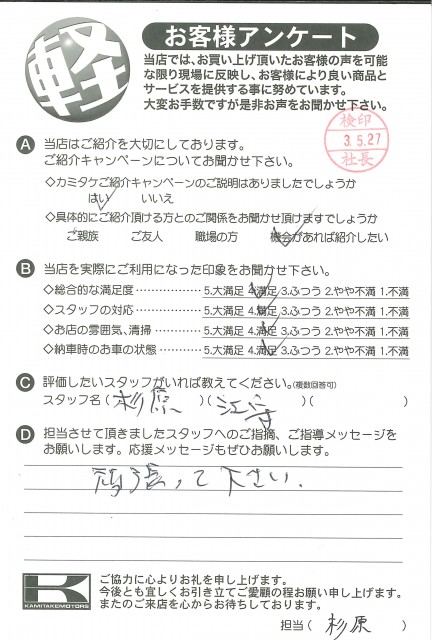 軽
お客様アンケート
当店では、お買い上げ頂いたお客様の声を可能
な限り現場に反映し、お客様により良い商品と
サービスを提供する事に努めています。
大変お手数ですが是非お声をお聞かせ下さい。
検印
3.5.27
社長
A 当店はご紹介を大切にしております。
ご紹介キャンペーンについてお聞かせ下さい。
◇カミタケご紹介キャンペーンのご説明はありましたでしょうか
はい いいえ
◇具体的にご紹介頂ける方とのご関係をお聞かせ頂けますでしょうか
ご親族 ご友人 職場の方 機会があれば紹介したい
B 当店を実際にご利用になった印象をお聞かせ下さい。
◇総合的な満足度……………5.大満足 4.満足 3.ふつう 2.やや不満 1.不満
◇スタッフの対応……………5.大満足 4.満足 3.ふつう 2.やや不満 1.不満
◇お店の雰囲気、清掃…………5.大満足 4.満足 3.ふつう 2.やや不満 1.不満
◇納車時のお車の状態…………5.大満足 4.満足 3.ふつう 2.やや不満 1.不満
C 評価したいスタッフがいれば教えてください。(複数回答可)
スタッフ名(杉原)(江守)( )
D 担当させて頂きましたスタッフへのご指摘、ご指導メッセージを
お願いします。応援メッセージもぜひお願いします。
頑張って下さい.
K
KAMITAKEMOTORS
ご協力に心よりお礼を申し上げます。
今後とも宜しくお引き立てご愛顧の程お願い申し上げます。
またのご来店を心からお待ちしております。
担当(杉原)